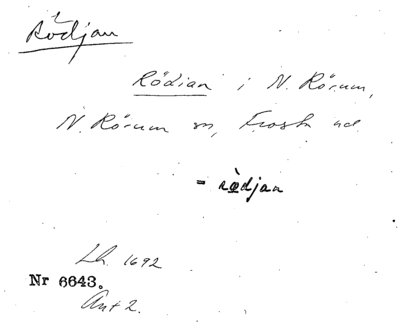 Rödjan
Rödian i N. Rörum,
N. Rörum sn, Frosta hd
= rödjan
Lh. 1692
Nr 6643.
Ant 2.